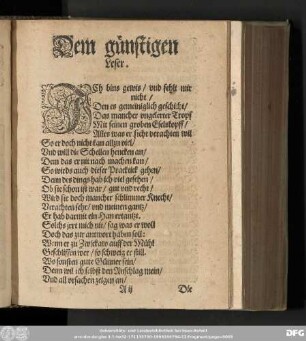 Dem günstigen
Leser.
ICh bins gewis / vnd fehlt mir
nicht /
Den es gemeiniglich geschicht /
Das mancher vngelerter Tropf
Mit seinem groben Eselskopff /
Alles was er sieht verachten wil
So er doch nicht kan allzu viel /
Vnd will die Schellen hencken an /
Dem das er nit nach machen kan /
So wirds auch dieser Practick gehen /
Denn des dings hab ich viel gesehen /
Ob sie schon ist war / gut vnd recht /
Wird sie doch mancher schlimmer Knecht /
Verachten sehr / vnd meinen gantz /
Er hab darmit ein
Solchs irrt mich nit / sag was er woll
Doch das zur antwort haben soll:
Wenn er zu Zwickaw auff der Mühl
Geschliffen wer / so schweig er still.
Wo sonsten gute Günner sein /
Denn wil ich selbst den Vorschlag mein /
Vnd all vrsachen zeigen an /
A ij Die